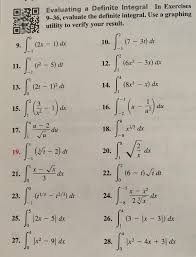 Evaluating a Definite Integral In Exercises
9–36, evaluate the definite integral. Use a graphing
utility to verify your result.
9. ∫ (2x − 1) dx
10. ∫ (7 − 3t) dt
11. ∫ (t² − 5) dt
12. ∫ (6x² − 3x) dx
13. ∫ (2t − 1)² dt
14. ∫ (8x³ − x) dx
15. ∫ (3/x² − 1) dx
16. ∫ (u − 1/u²) du
17. ∫ (u − 2)/√u du
18. ∫ x^(1/3) dx
19. ∫ (∛t − 2) dt
20. ∫ √(2/x) dx
21. ∫ (x − √x)/3 dx
22. ∫ (6 − t)√t dt
23. ∫ (t^(1/3) − t^(2/3)) dt
24. ∫ (x − x²)/(2∛x) dx
25. ∫ |2x − 5| dx
26. ∫ (3 − |x − 3|) dx
27. ∫ |x² − 9| dx
28. ∫ |x² − 4x + 3| dx